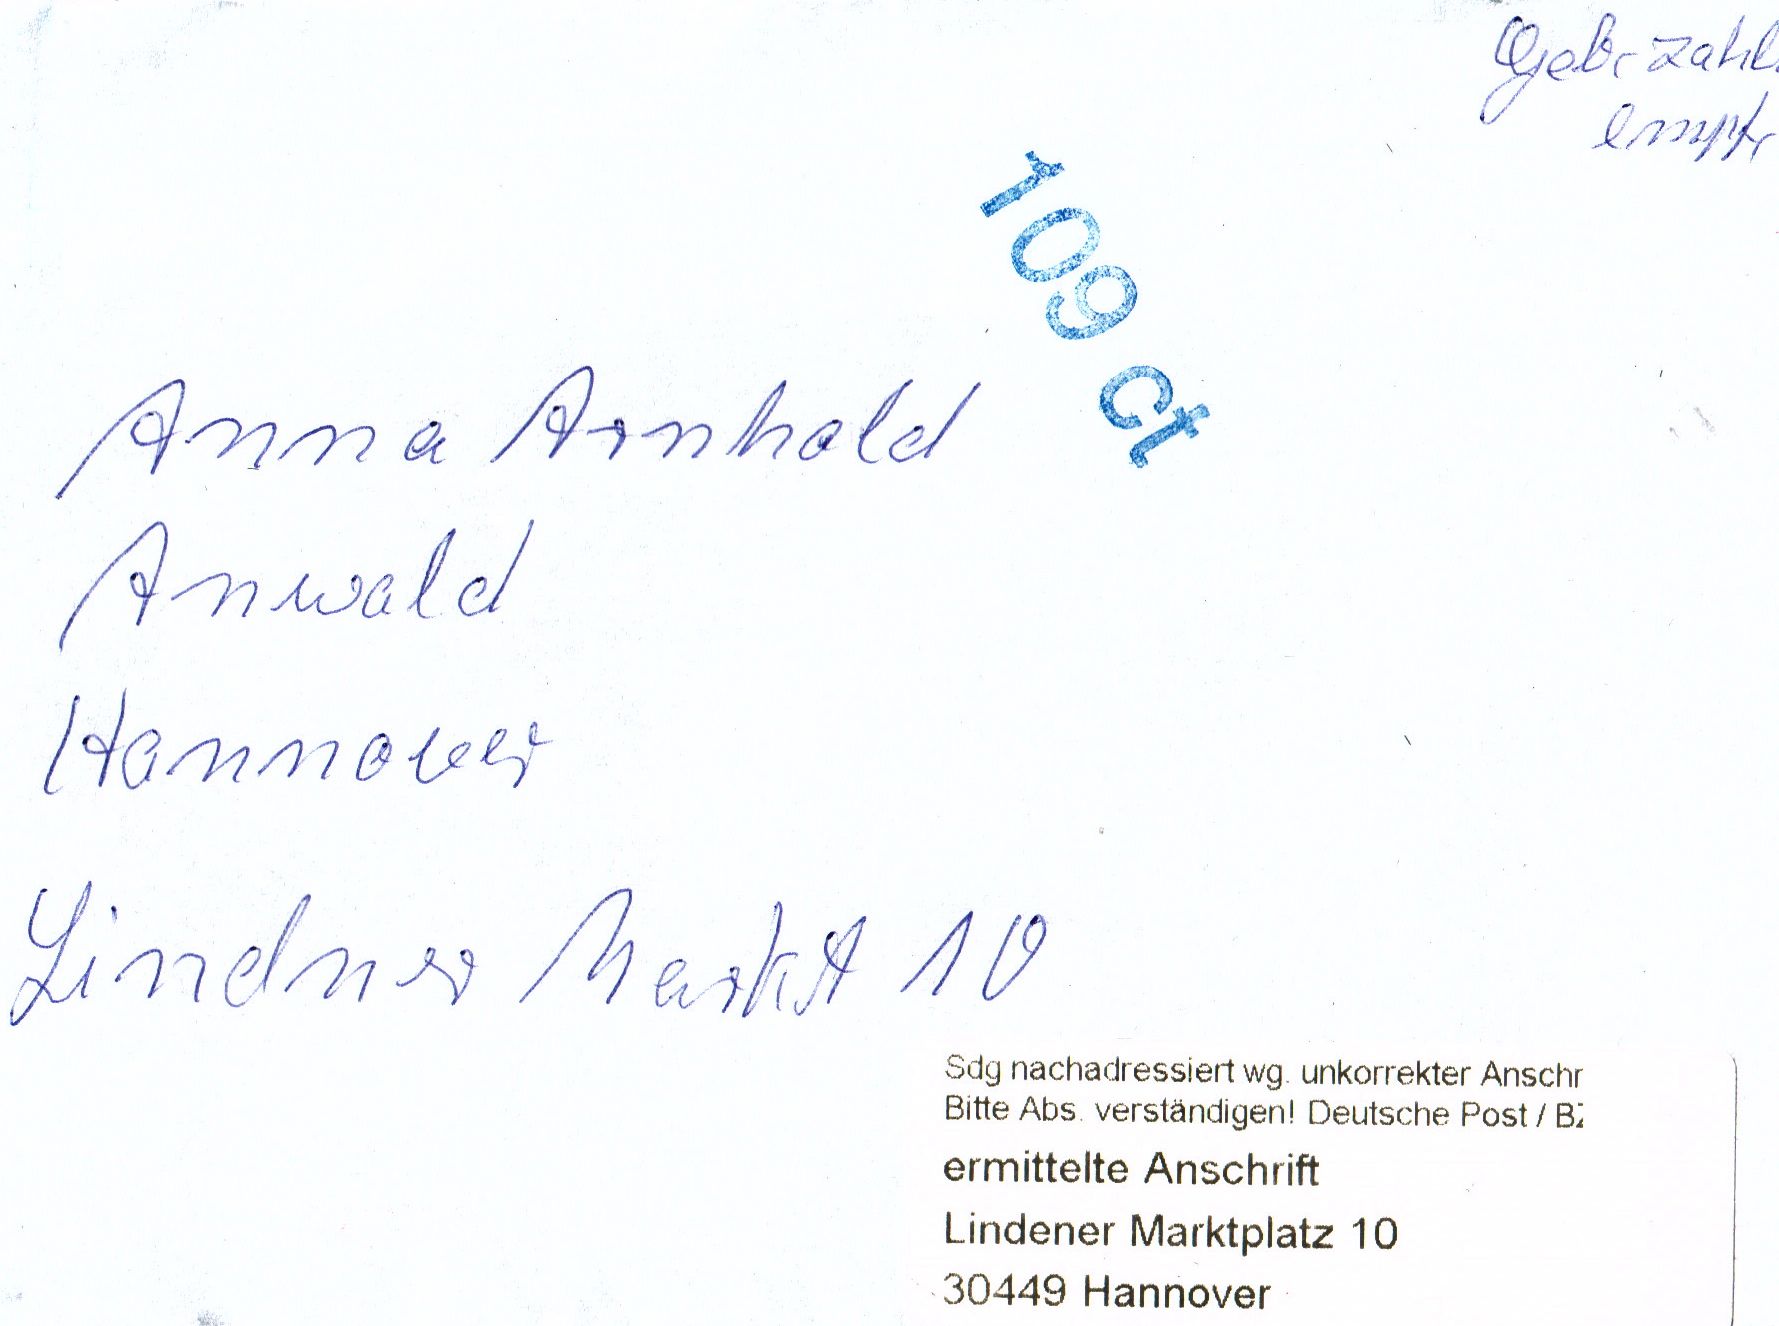 Geb. zahlt
empf.
109 ct
Anna Arnhold
Anwald
Hannover
Lindner Markt 10
Sdg nachadressiert wg. unkorrekter Anschr
Bitte Abs. verständigen! Deutsche Post / BZ
ermittelte Anschrift
Lindener Marktplatz 10
30449 Hannover